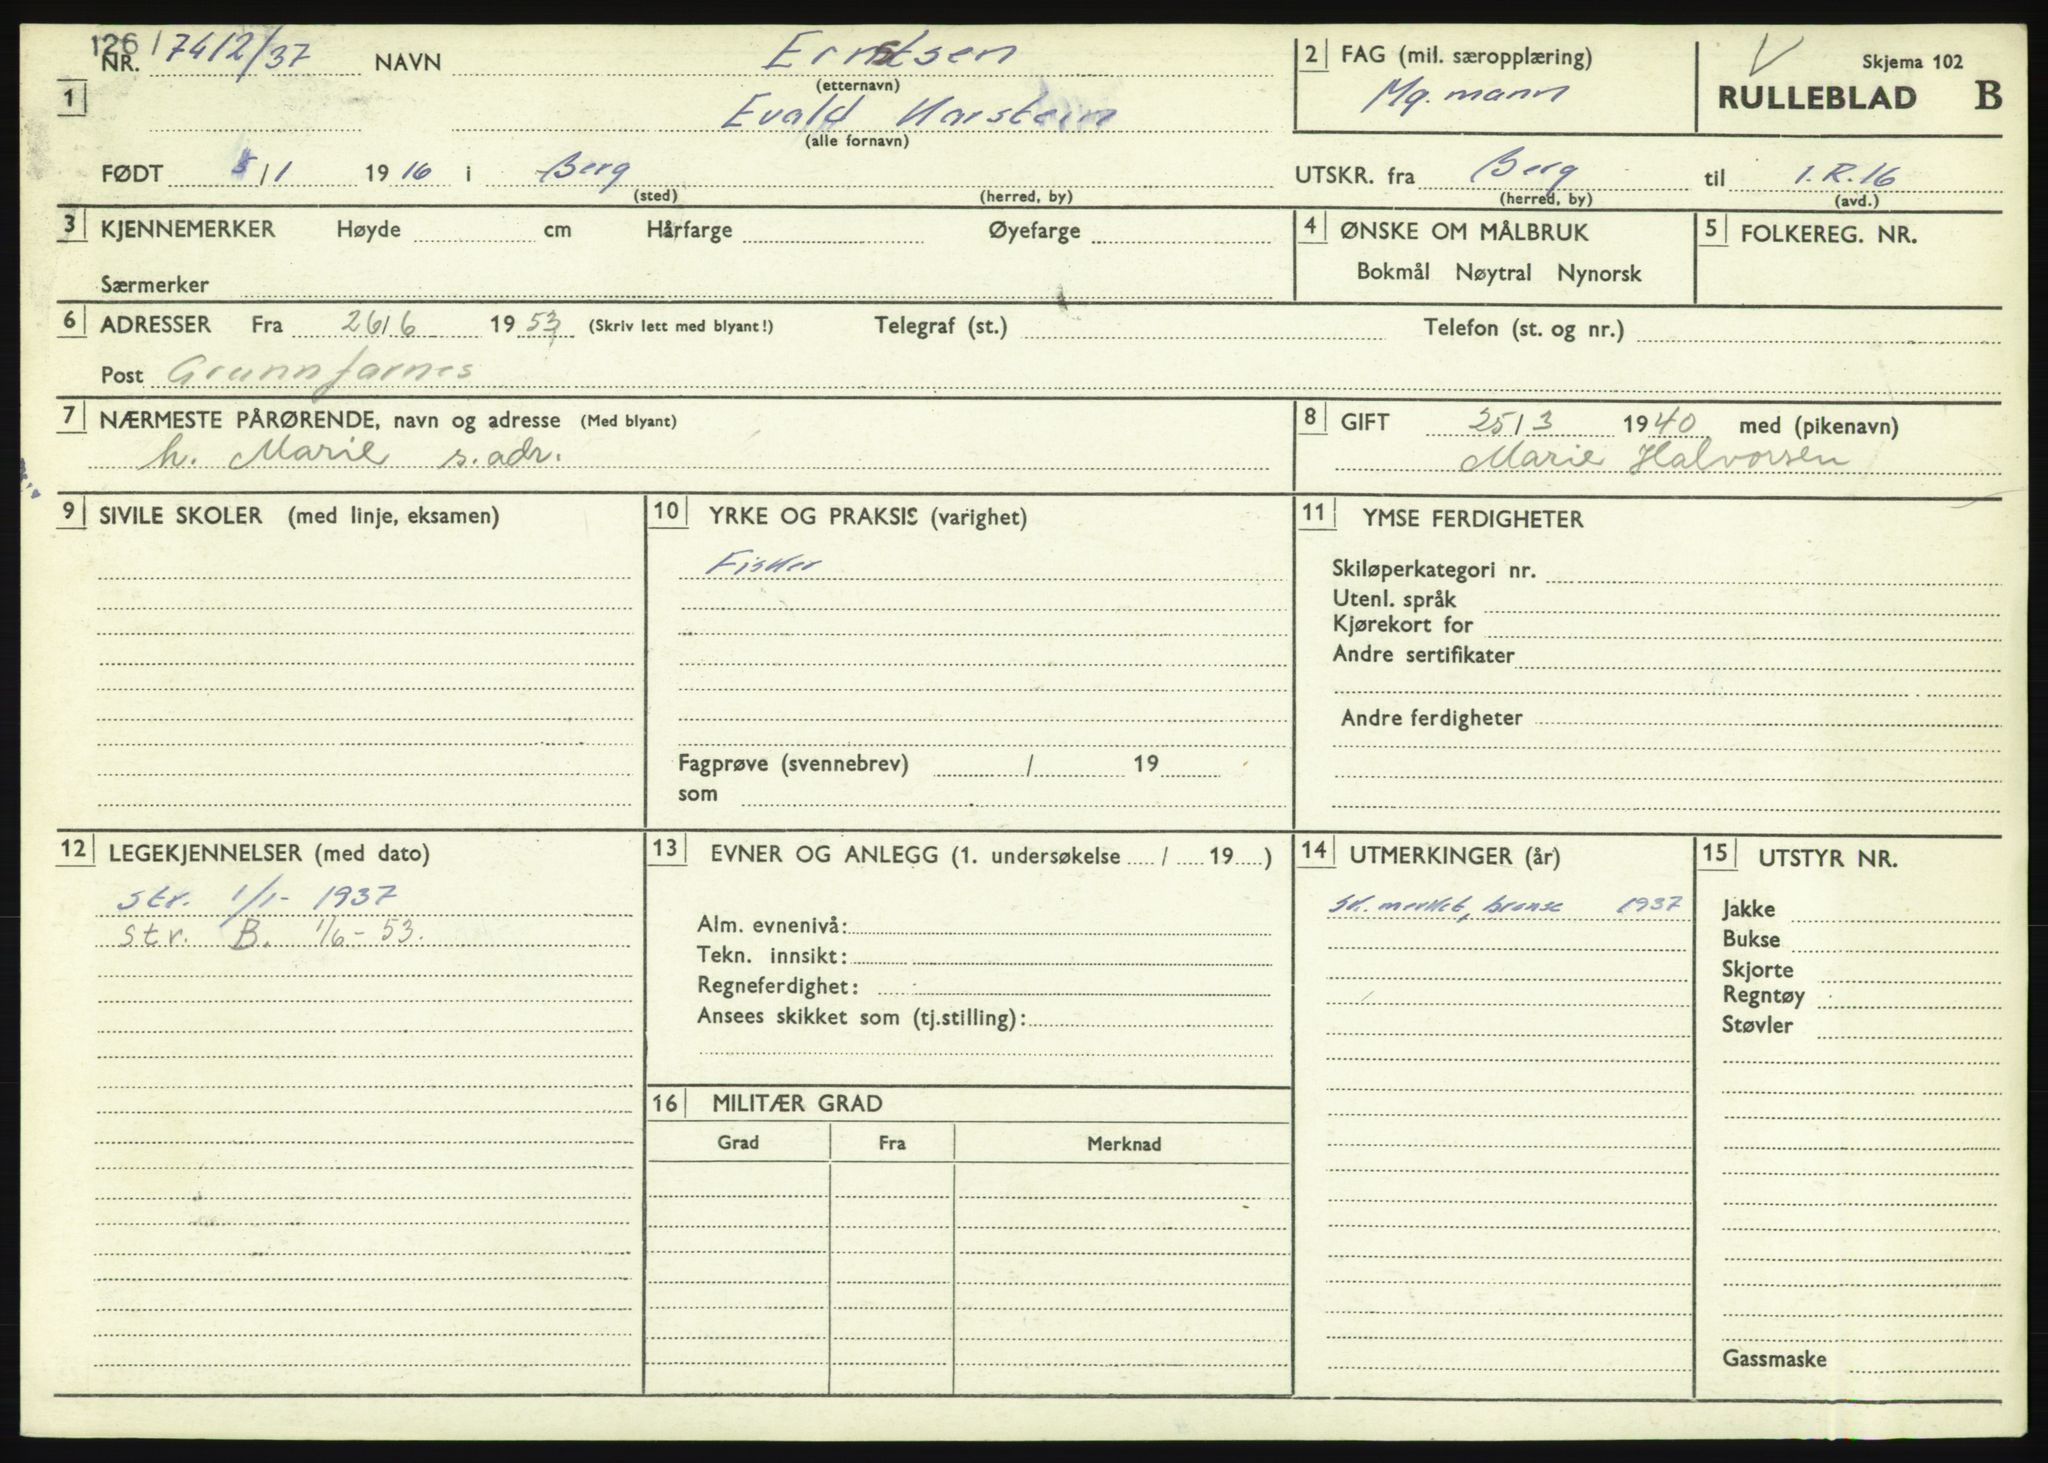 126/7412/37
NR. NAVN Erntsen
(etternavn)
1
Evald Harstein
(alle fornavn)
2 FAG (mil. særopplæring)
Mg. mann
V
Skjema 102
RULLEBLAD B
FØDT 5/1 1916 i Berg
(sted) (herred, by)
UTSKR. fra Berg til I.R.16
(herred, by) (avd.)
3 KJENNEMERKER Høyde cm Hårfarge Øyefarge
Særmerker
4 ØNSKE OM MÅLBRUK
Bokmål Nøytral Nynorsk
5 FOLKEREG. NR.
6 ADRESSER Fra 26/6 1953 (Skriv lett med blyant!) Telegraf (st.) Telefon (st. og nr.)
Post Grunnfarnes
7 NÆRMESTE PÅRØRENDE, navn og adresse (Med blyant)
h. Marie s. adr.
8 GIFT 25/3 1940 med (pikenavn)
Marie Halvorsen
9 SIVILE SKOLER (med linje, eksamen)
10 YRKE OG PRAKSIS (varighet)
Fisker
Fagprøve (svennebrev) / 19
som
11 YMSE FERDIGHETER
Skiløperkategori nr.
Utenl. språk
Kjørekort for
Andre sertifikater
Andre ferdigheter
12 LEGEKJENNELSER (med dato)
str. 1/1- 1937
str. B. 1/6-53.
13 EVNER OG ANLEGG (1. undersøkelse / 19 )
Alm. evnenivå:
Tekn. innsikt:
Regneferdighet:
Ansees skikket som (tj.stilling):
14 UTMERKINGER (år)
Sk. merket, bronse 1937
15 UTSTYR NR.
Jakke
Bukse
Skjorte
Regntøy
Støvler
Gassmaske
16 MILITÆR GRAD
Grad Fra Merknad